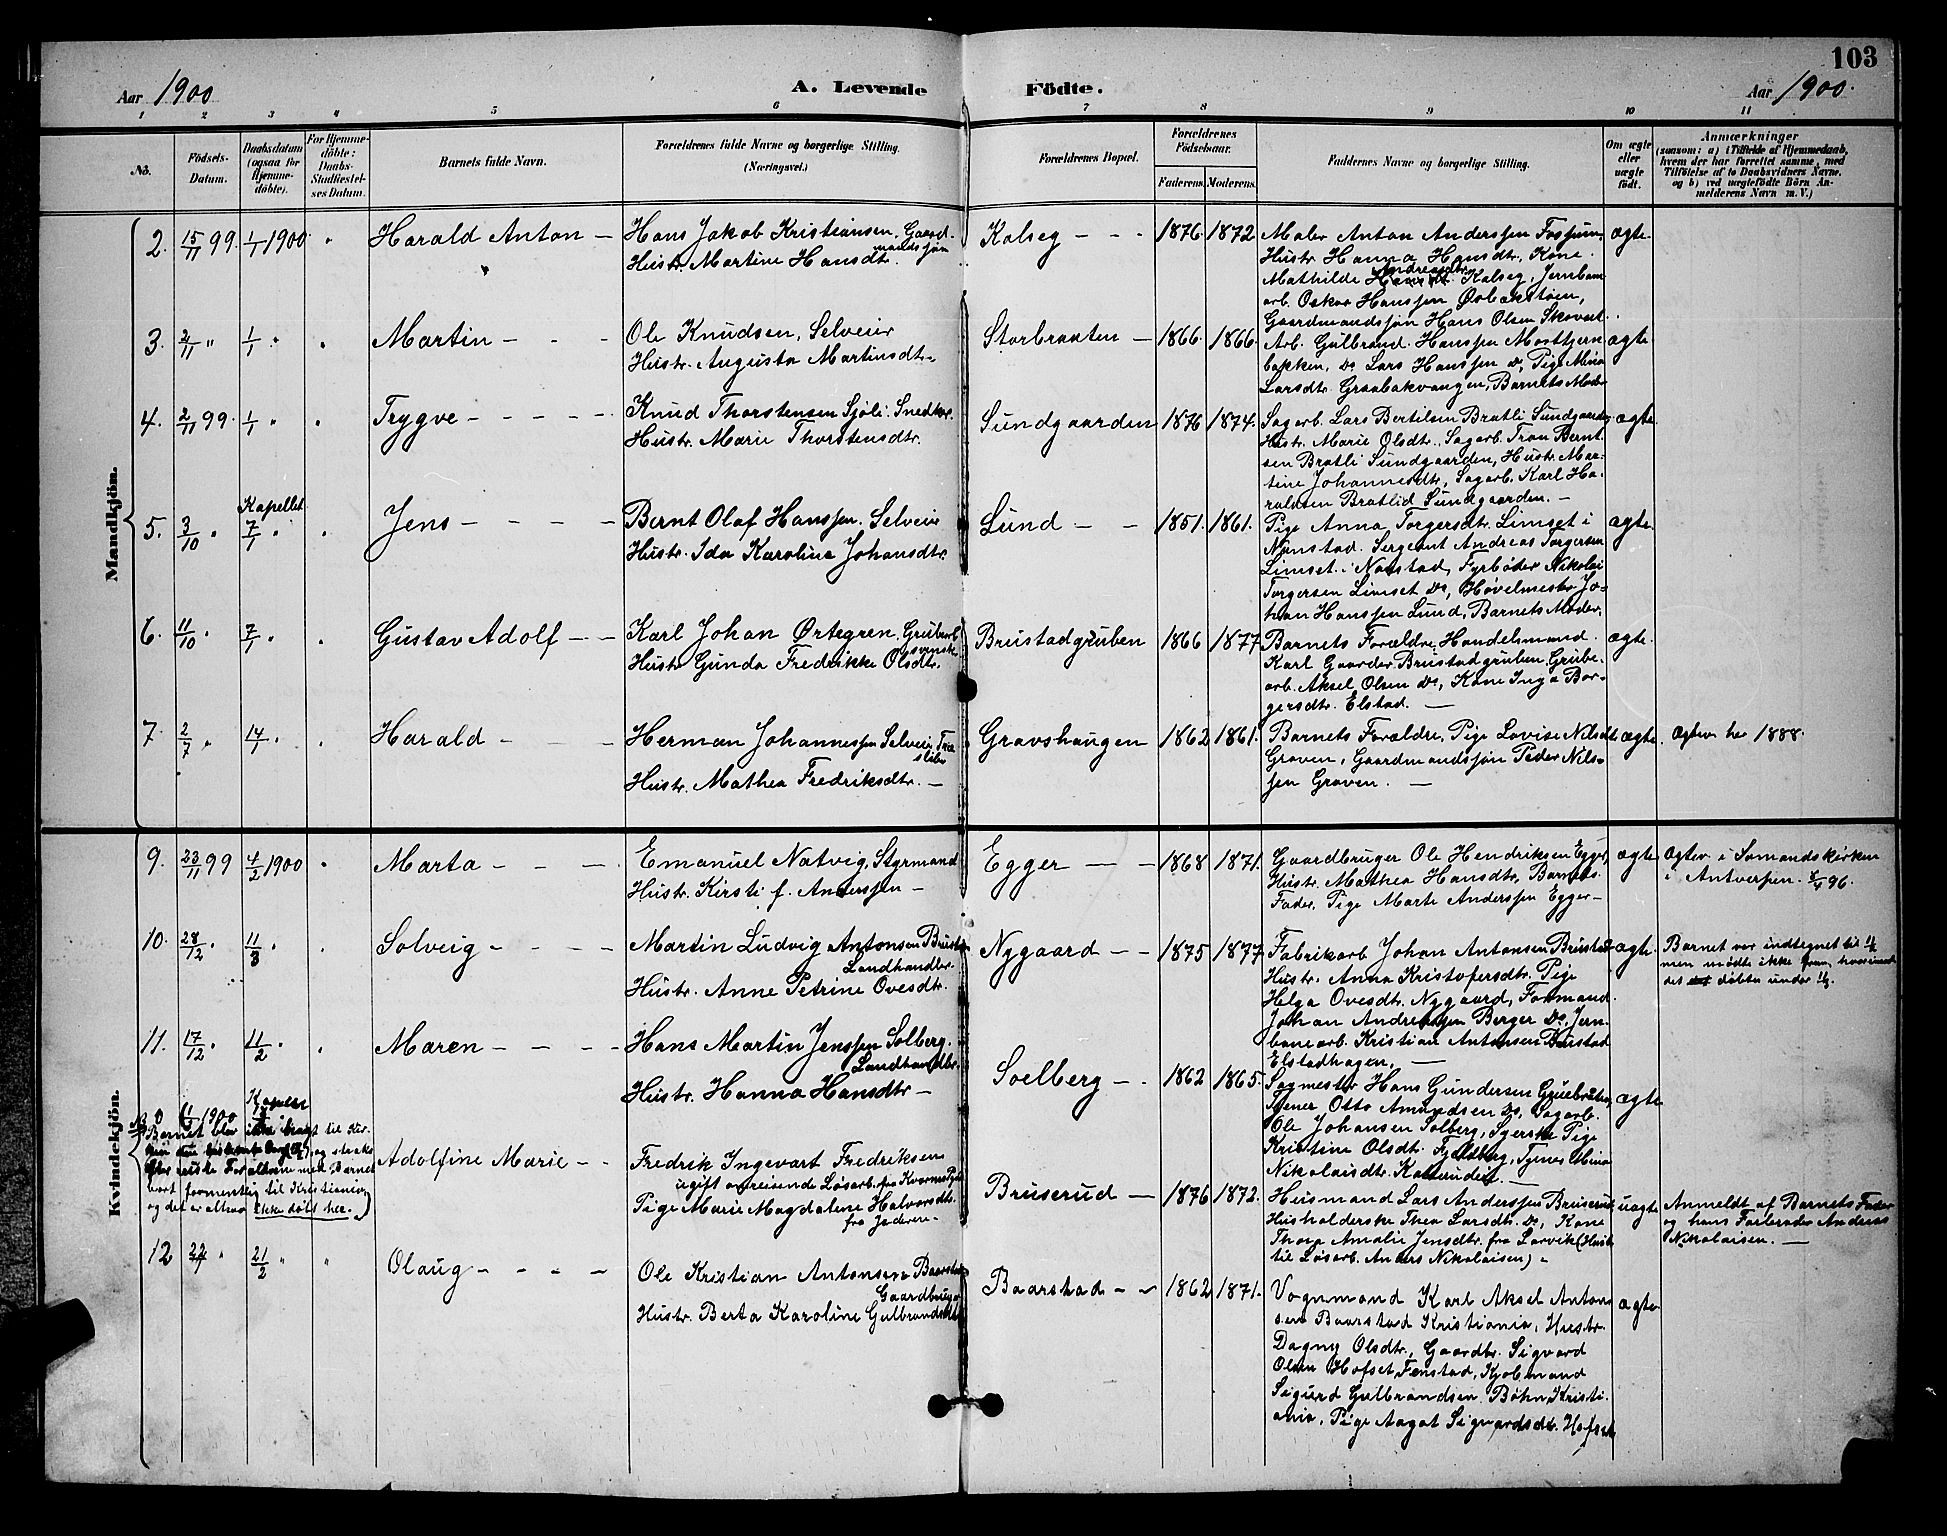 103
Aar 1900 A. Levende Födte. Aar 1900.
1 2 3 4 5 6 7 8 9 10 11
No.
Födsels-
Datum.
Daabsdatum
(ogsaa for
Hjemme-
döbte).
For Hjemme-
döbte:
Daabs-
Stadfæstel-
ses Datum.
Barnets fulde Navn.
Forældrenes fulde Navne og borgerlige Stilling.
(Næringsvei.)
Forældrenes Bopæl.
Forældrenes
Födselsaar.
Faderens. Moderens.
Faddernes Navne og borgerlige Stilling.
Om ægte
eller
uægte
födt.
Anmærkninger
(saasom: a) i Tilfælde af Hjemmedaab,
hvem der har forrettet samme, med
Tilföielse af to Daabsvidners Navne.
og b) ved uægtefödte Börn An-
melderens Navn m. V.)
Mandkjön.
2. 15/11 99. 1/1 1900. " Harald Anton —
Hans Jakob Kristiansen, Gaard-
mandssøn
Hustr. Martine Hansdtr.
Kalseg - - - 1876. 1872.
Maler Anton Anderssen Fossum,
Hustr. Hanna Hansdtr, Kone
Andreasdtr.
Mathilde Kalseg, Jernbane
arb. Oskar Hanssen Ørbækstøen,
Gaardmandssøn Hans Olsen Skovset.
ægte.
3. 2/11 " 1/1 " " Martin - - -
Ole Knudsen, Selveier
Hustr. Augusta Martinsdtr.
Storbraaten — 1866. 1866.
Arb. Gulbrand Hanssen Mosttjern
bakken, Do Lars Hanssen Do, Pige Mina
Larsdtr. Graabakvangen, Barnets Moder
ægte.
4. 2/11 99. 1/1 " " Trygve - - - - -
Knud Thorstensen Sjöli. Snedker.
Hustr. Marie Thorstensdtr.
Sundgaarden 1876 1874.
Sagarb. Lars Bertilsen Bratli Sundgaarden
Hustr. Marie Olsdtr., Sagarb. Tron Bernt
sen Bratli Sundgaarden, Hustr. Mar-
tine Johannesdtr, Sagarb. Karl Ha-
raldsen Bratlid Sundgaarden. —
ægte.
Kapellet
5. 3/10 " 7/1 " " Jens - - - - -
Bernt Olaf Hanssen. Selveier
Hustr. Ida Karoline Johansdtr.
Lund - - 1851. 1861.
Pige Anna Torgersdtr. Limset i
Nanstad. Sergeant Andreas Torgersen
Limset i Nanstad, Fyrbøder Nikolai
Torgersen Limset Do, Høvelmester Jo-
han Hanssen Lund, Barnets Moder.
ægte.
6. 11/10 " 7/1 " " Gustav Adolf - -
Karl Johan Ørtegren, Grubearb
svensk
Hustr Gunda Fredrikke Olsdtr.
Brustadgruben 1866 1877
Barnets Forældre, Handelsmand
Karl Gaarder Brustadgruben, Grube-
arb. Aksel Olsen Do, Kone Inga Bor-
gersdtr. Elstad. —
ægte.
7. 2/7 " 14/1 " " Harald - - -
Herman Johannessen Selveier,
Hustr. Mathea Fredriksdtr. —
Gravshaugen 1862 1861.
Barnets Forældre, Pige Lovise Nilsdtr
Graven, Gaardmandssøn Peder Nils-
sen Graven. —
ægte. Ægtev. her 1888.
Kvindekjön.
9. 23/11 99 4/2 1900 " Marta - - -
Emanuel Natvig, Styrmand
Hustr. Kirsti f. Anderssen —
Egger — — 1868 1871.
Gaardbruger Ole Hendriksen Egger,
Hustr. Mathea Hansdtr, Barnets
Fader, Pige Marte Anderssen Egger—
ægte Ægtev. i Sømandskirken
i Antverpen. 96.
10. 28/12 " 11/3 " Solveig - - - -
Martin Ludvig Antonsen Brustad
Landhandler.
Hustr. Anne Petrine Ovesdtr.
Nygaard - - 1875 1877.
Fabrikarb Johan Antonsen Brustad
Hustr. Anna Kristofersdtr. Pige
Helga Ovesdtr. Nygaard, Formand
Johan Andreassen Berger Do, Jern-
banearb. Kristian Antonsen Brustad
Elstadhagen, —
ægte. Barnet var indtegnet til 11/2
men mødte ikke frem, hvorimod
det døbtes under 11/3.
11. 17/12 " 11/2 " " Maren - - - -
Hans Martin Jenssen Solberg.
Landhandler.
Hustr. Hanna Hansdtr —
Soelberg - - 1862 1865.
Sagmester Hans Gundersen Gruebraaten,
Tjener Otto Amundsen Do, Sagarb.
Ole Johansen Solberg, Syerske Pige
Kristine Olsdtr. Fjeldberg, Tjener Mina
Nikolaisdtr. Kalerudeie. —
ægte
N.B. 0 1900 Kapellet
Barnet blev ikke bragt til Kir-
og straks
reiste Forældrene med Barnet
bort formentlig til Kristiania,
og det er altsaa ikke døbt her.)
Adolfine Marie - -
Fredrik Ingevart Fredriksen
ugift omreisende Løsarb. fra
Pige Marie Magdalene Halvorsdtr.
fra Jæderen—
Bruserud — 1876 1872.
Husmand Lars Anderssen Bruserud
Husholderske Thea Larsdtr. Do, Kone
Thora Amalie Jensdtr. fra Larvik (Hustr
til Løsarb. Anders Nikolaisen) -
uægte Anmeldt af Barnets Fader
og hans Forlover Anders
Nikolaisen. —
12 " 21/2 " " Olaug - - - -
Ole Kristian Antonsen Baarstad
Gaardbruger
Hustr. Berta Karoline Gulbrandsdtr
Baarstad - - 1862 1871.
Vognmand Karl Aksel Anton
sen Baarstad Kristiania, Hustr.
Dagny Olsdtr., Gaardbr. Sigvard
Olsen Hofset, Fenstad, Kjøbmand
Sigurd Gulbrandsen Bøhn, Kristi-
ania, Pige Aagot Sigvardsdtr. Hofset
ægte